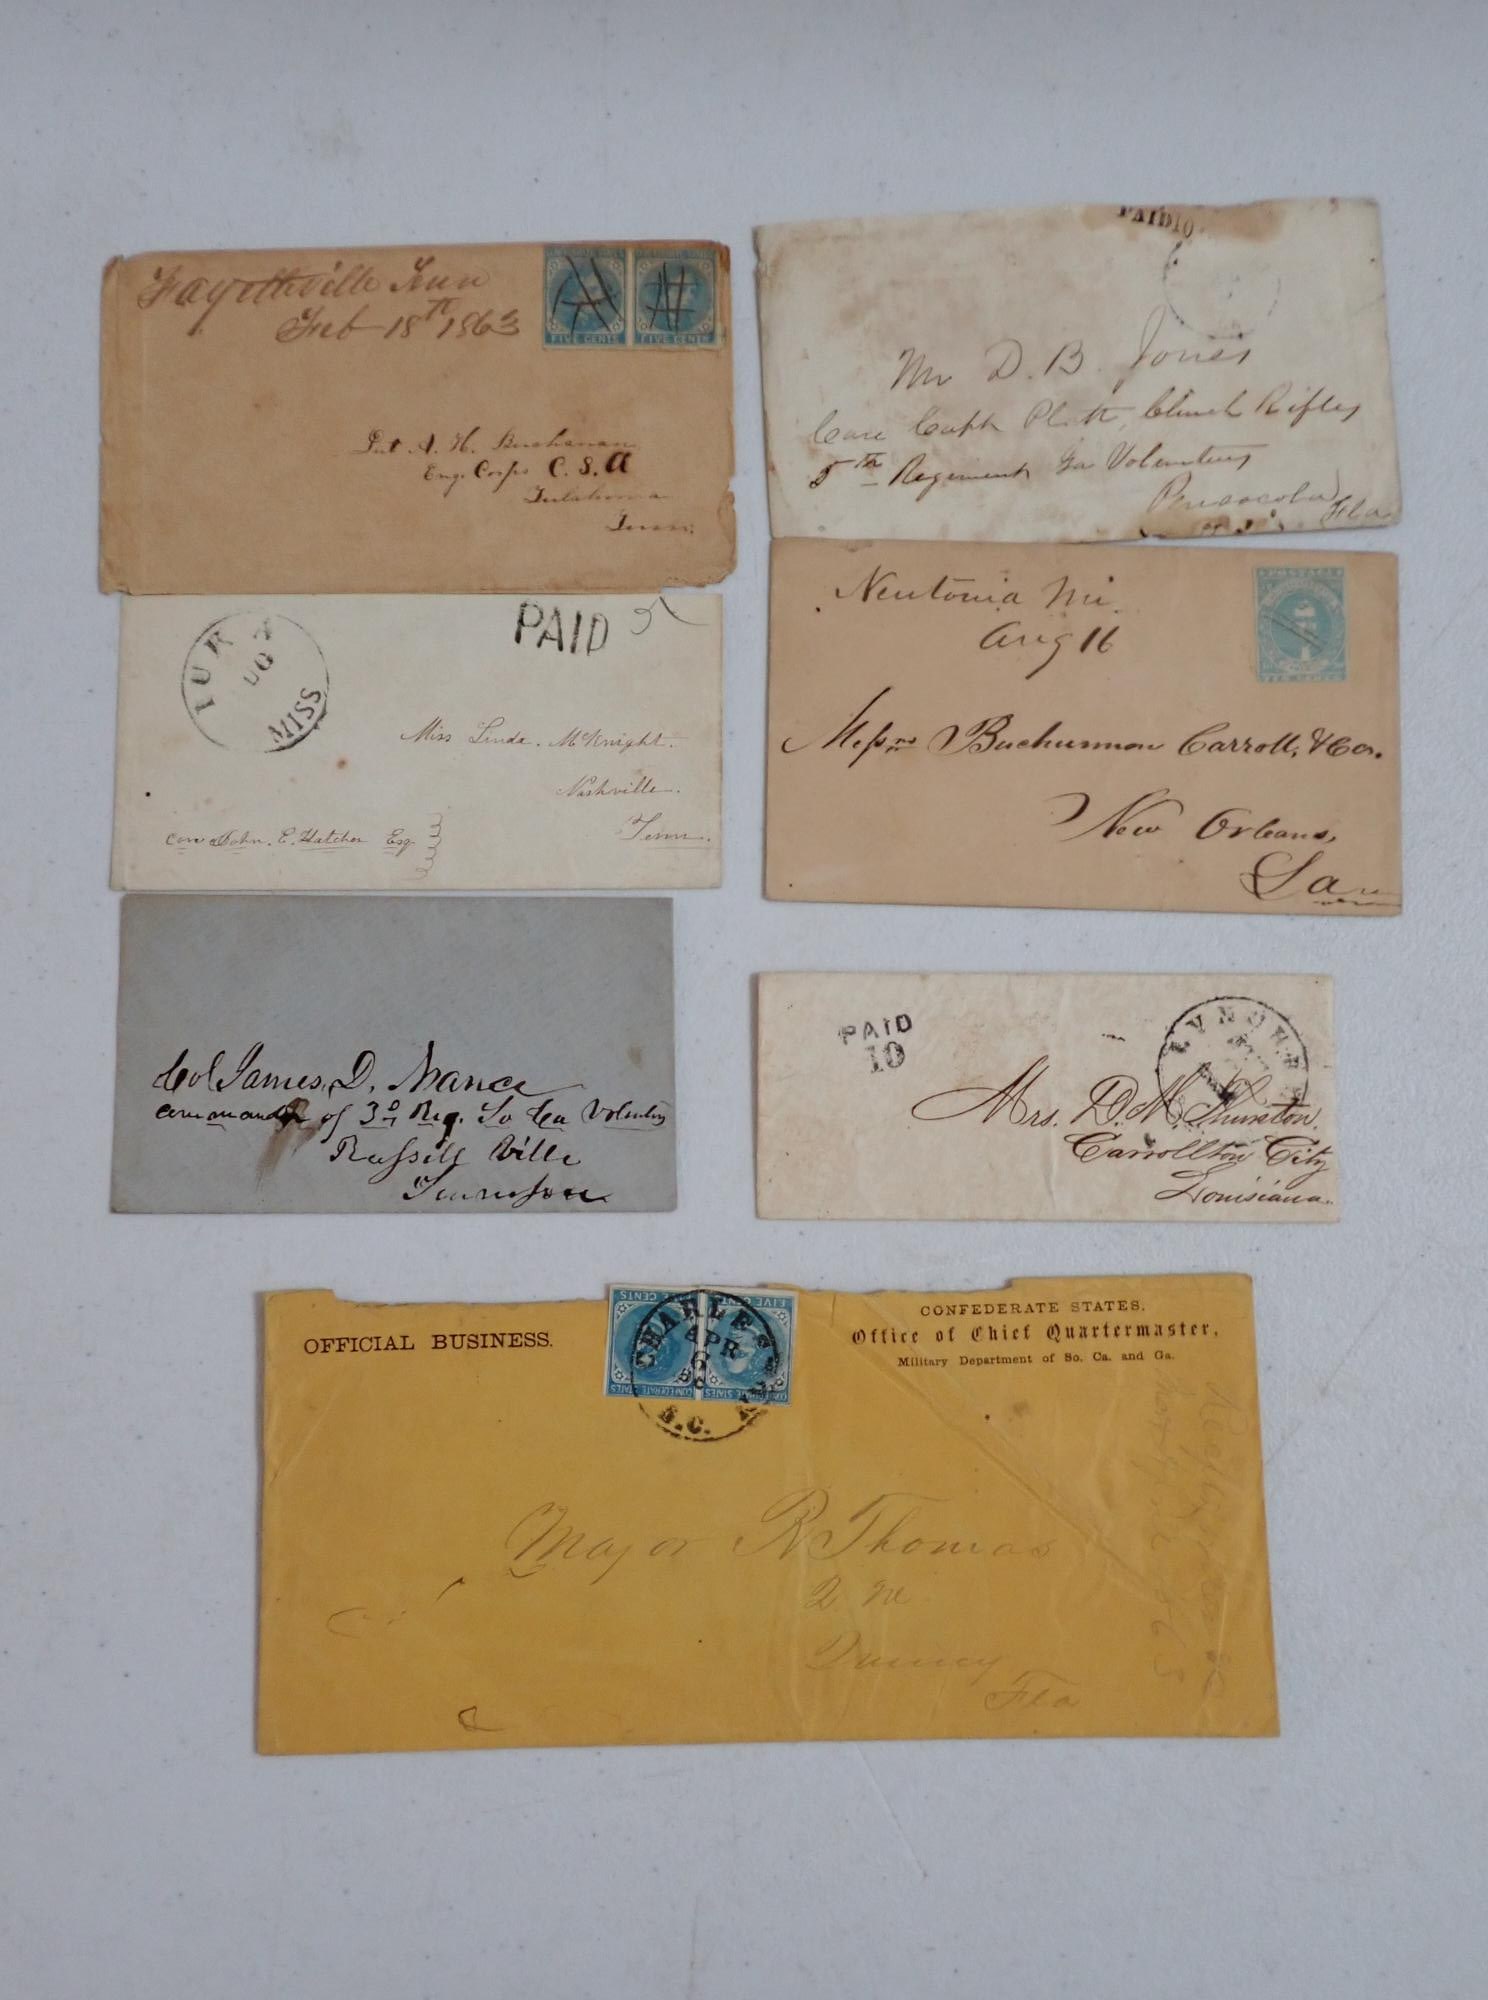 Fayettville Tenn
Feb 18th 1863
FIVE CENTS
FIVE CENTS
Lut A. H. Buchanan
Eng. Corps C. S. A
Tullahoma
Tenn.
PAID 10
Mr D. B. Jones
Care Capt Platt, Clinch Rifles
5th Regiment Ga Volunteers
Pensacola
Fla
IUKA
MISS
PAID 5
Miss Linda. McKnight.
Nashville.
Tenn.
care John. E. Hatcher Esq
Newtonia Mi.
Aug 16
POSTAGE
TEN CENTS
Messrs Buchannon Carroll, & Co.
New Orleans,
La
Col James, D. Nance
commander of 3d Reg. So Ca Volunters
Russill Ville
Tennessee
PAID
10
LYNCHB
Mrs. D. M. Thurston.
Carrollton City
Louisiana.
OFFICIAL BUSINESS.
FIVE CENTS
CONFEDERATE STATES
CHARLES
APR
6
S.C.
CONFEDERATE STATES.
Office of Chief Quartermaster,
Military Department of So. Ca. and Ga.
Major R Thomas
Q M
Quincy
Fla